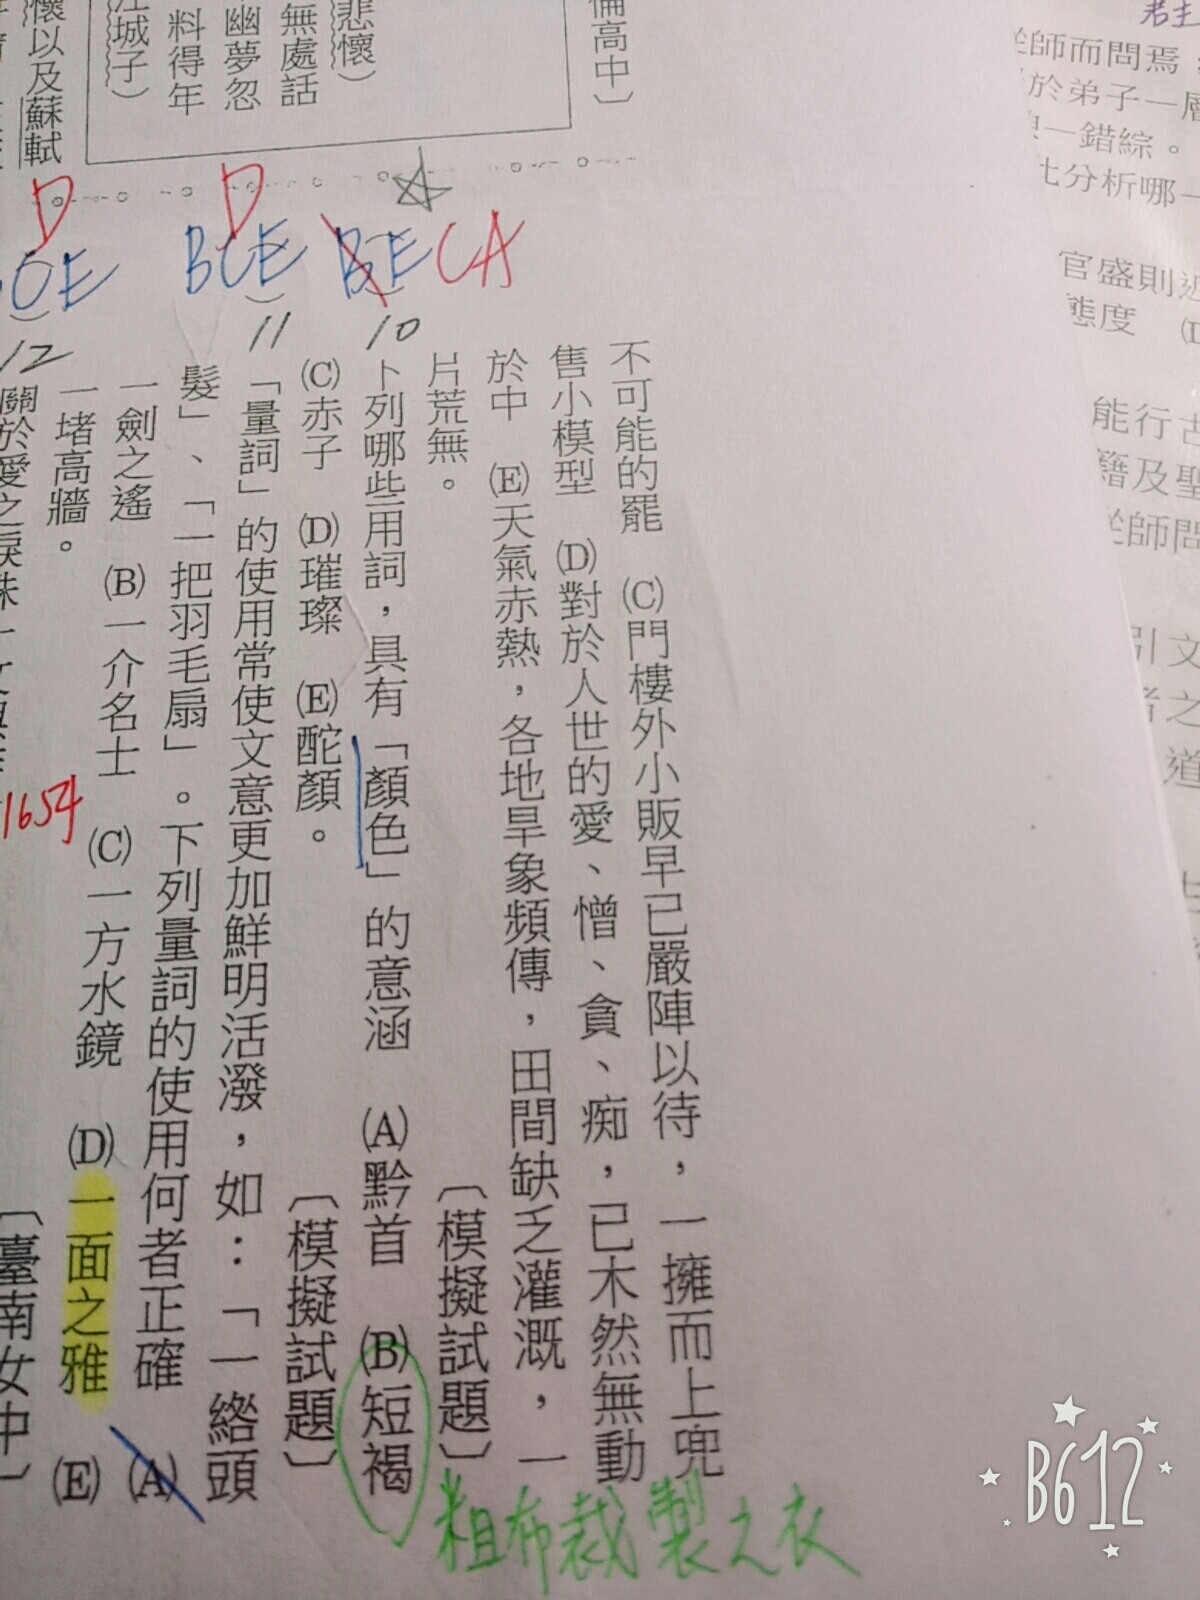 君主
從師而問焉
於弟子一層
一錯綜。
比分析哪一
官盛則近
態度
能行古
籍及聖
從師問
引文
者之
道
倫高中〕
悲懷）
無處話
幽夢忽
料得年
江城子）
懷以及蘇軾
不可能的罷 (C)門樓外小販早已嚴陣以待，一擁而上兜
售小模型 (D)對於人世的愛、憎、貪、痴，已木然無動
於中 (E)天氣赤熱，各地旱象頻傳，田間缺乏灌溉，一
片荒無。 〔模擬試題〕
CA
BE
10
下列哪些用詞，具有「顏色」的意涵 (A)黔首 (B)短褐
粗布裁製之衣
(C)赤子 (D)璀璨 (E)酡顏。 〔模擬試題〕
D
BCE
11
「量詞」的使用常使文意更加鮮明活潑，如：「一綹頭
髮」、「一把羽毛扇」。下列量詞的使用何者正確 (A)
一劍之遙 (B)一介名士 (C)一方水鏡 (D)一面之雅 (E)
一堵高牆。 〔臺南女中〕
D
CE
12
關於愛之淚珠
165頁
B612